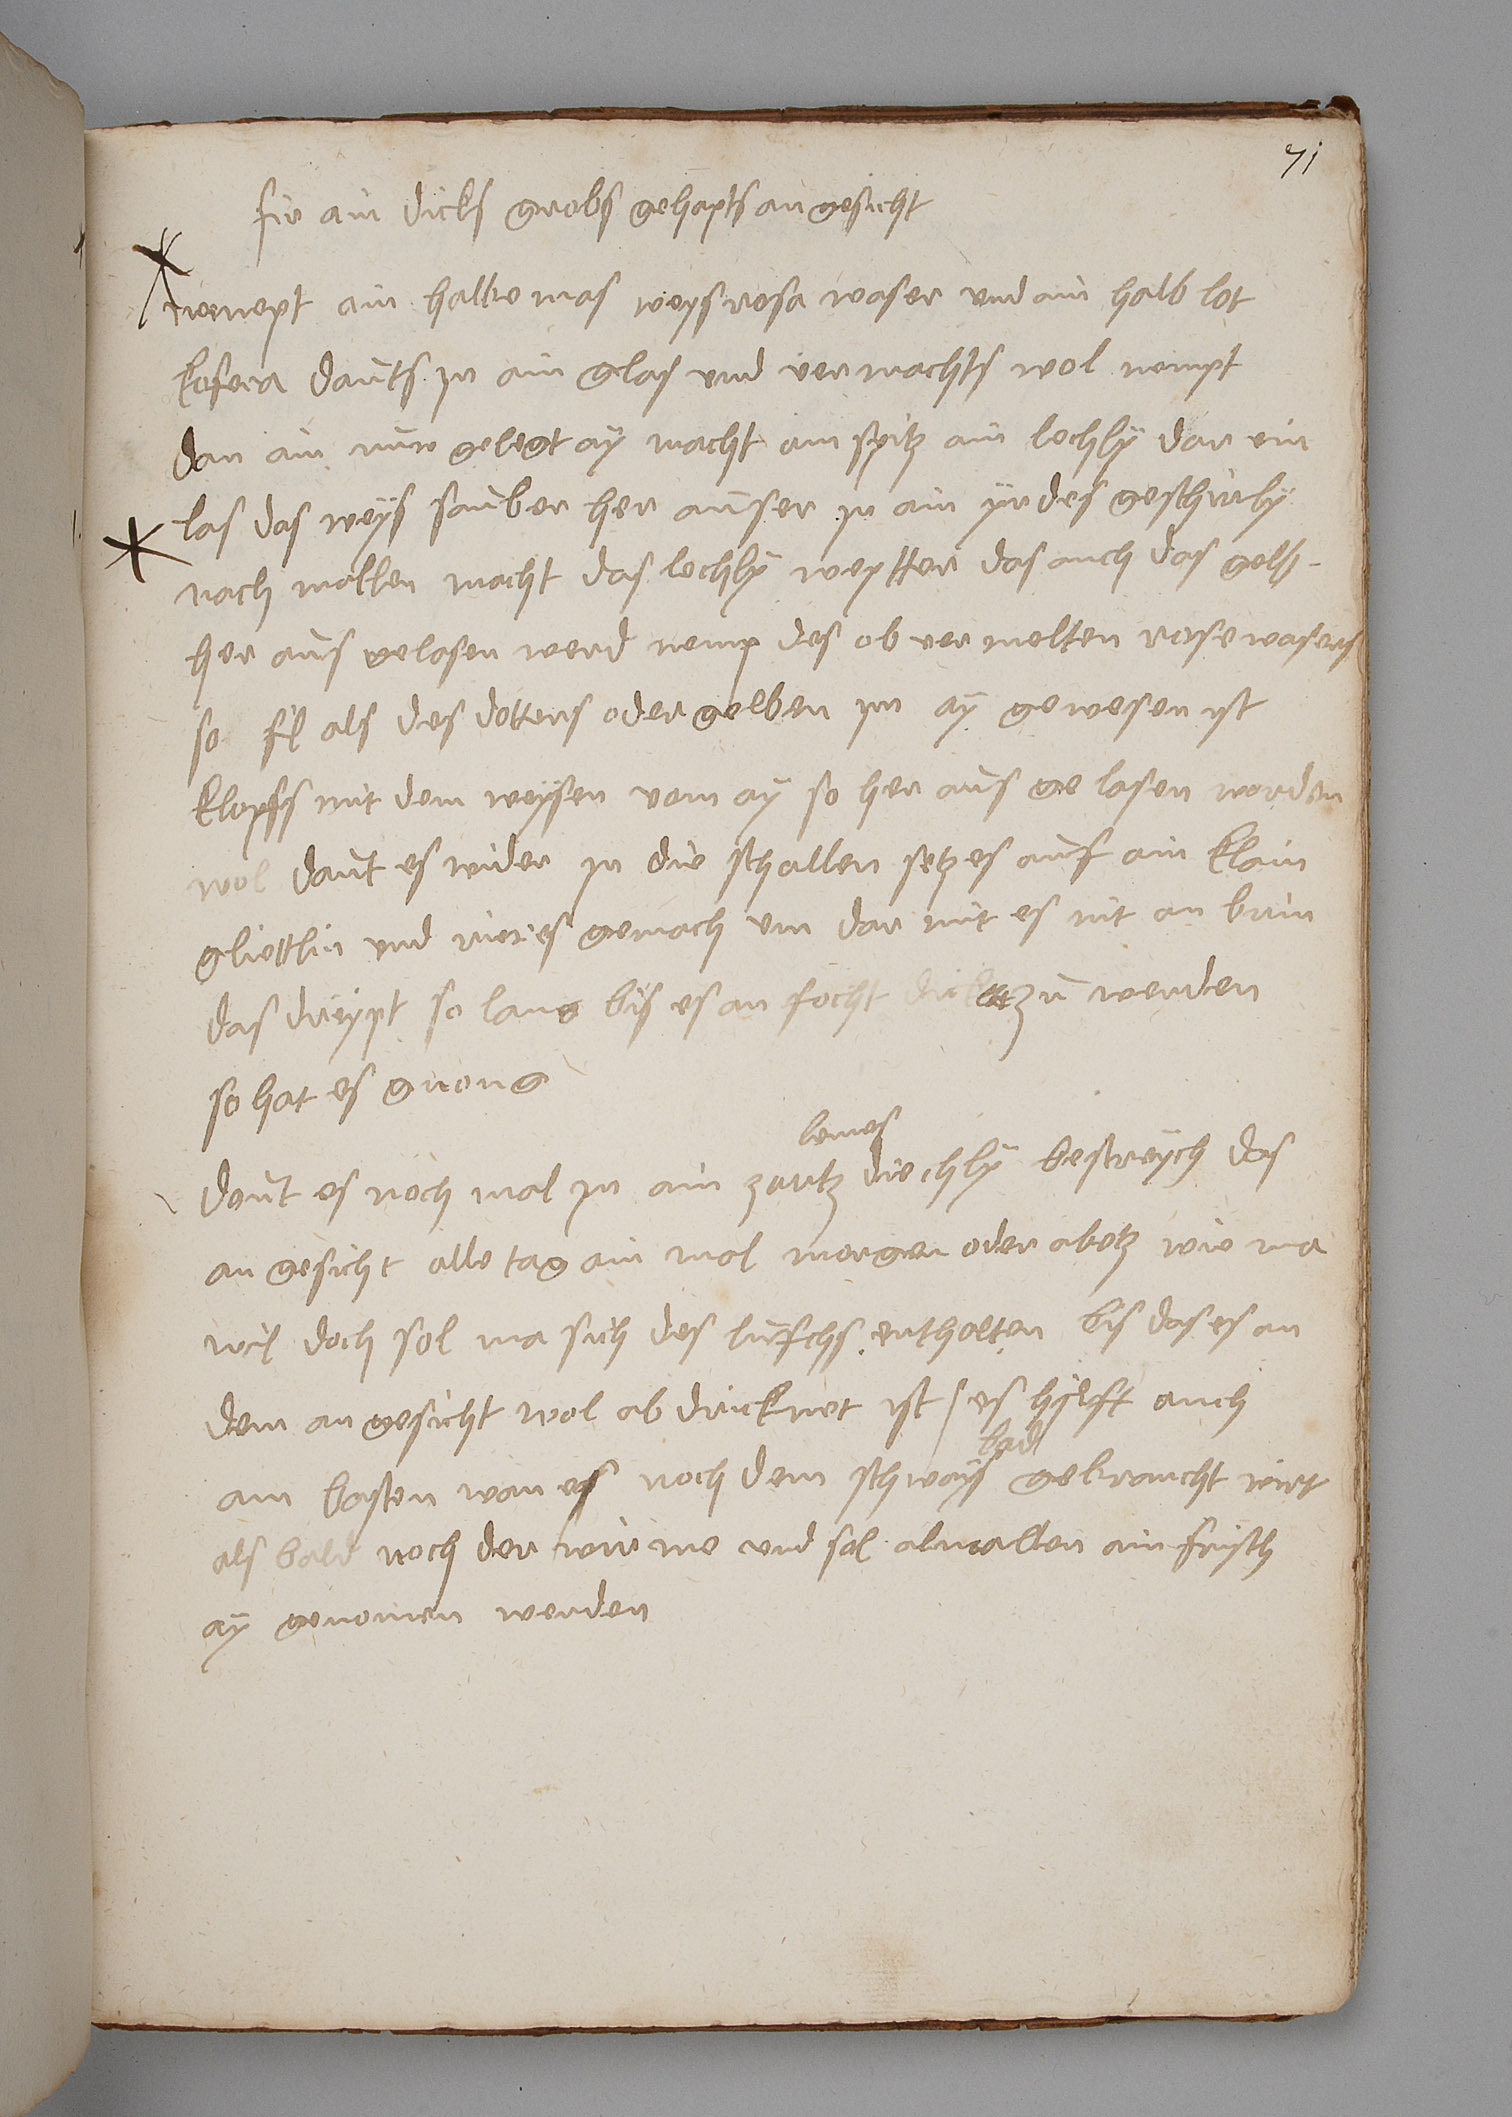 71
fir ain dicks grobs gehapts an gesicht
nempt ain halbe mas weys rosa waser und ain halb lot
kofera dautz in ain glas und vermachts wol nempt
dan ain nuw gelegt ay macht am spitz ain lochly dar ein
las das weys sauber her auser in ain yrdes geschirly
nach mallen macht das lechly weytter das auch das gelb
her aus gelasen werd nemp des ob vermelten rose wasers
so fil als des dotters oder gelben im ay gewesen ist
klopfs mit dem weysen vom ay so her aus ge lasen worden
wol daut es wider in die schallen setz es auf ain klain
gliettlin und rier es gemach um dar mit es nit an brin
das dreypt so lang bis es an focht dick zu werden
so hat es gnoug
lemes
dout es noch mal in ain zartz diechly bestreych das
an gesicht alle tag ain mal morgen oder abetz wie ma
wil doch sol ma sich des luftchs entholten bis das es an
dem an gesicht wol ab dricknet ist / es hilft auch
bad
am basten wan es noch dem schways gebraucht wirt
als bald noch der wirme und sol almallen ain frisch
ay genomen werden